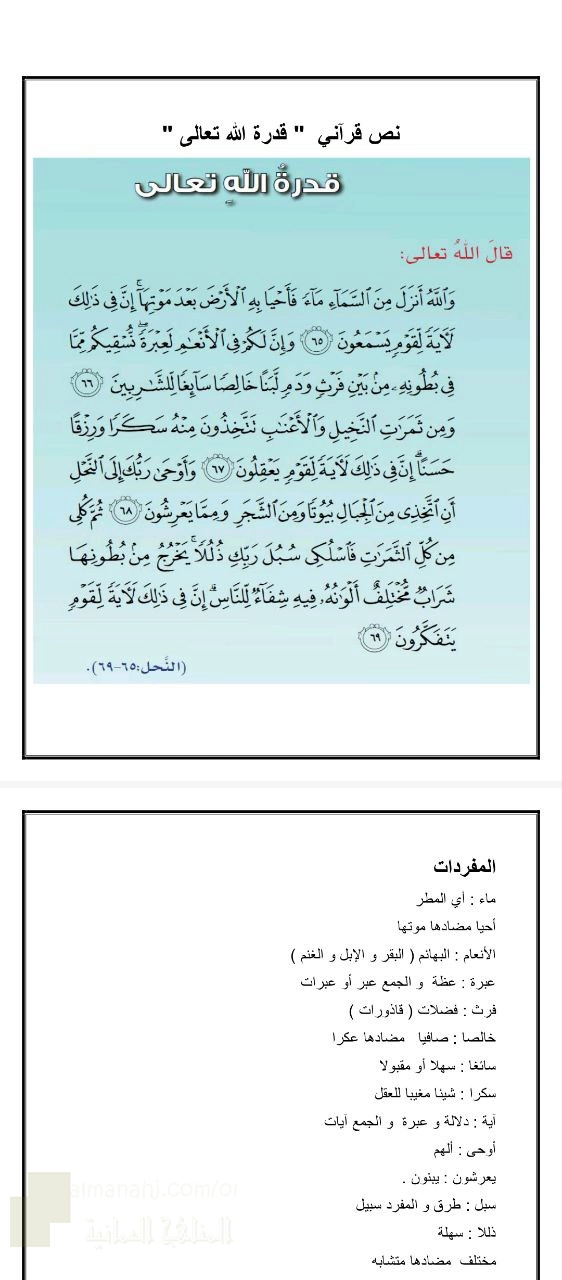 نص قرآني " قدرة الله تعالى "
قدرةُ اللهِ تعالى
قالَ اللهُ تعالى:
وَٱللَّهُ أَنزَلَ مِنَ ٱلسَّمَآءِ مَآءٗ فَأَحۡيَا بِهِ ٱلۡأَرۡضَ بَعۡدَ مَوۡتِهَآۚ إِنَّ فِي ذَٰلِكَ
لَأٓيَةٗ لِّقَوۡمٖ يَسۡمَعُونَ ٦٥ وَإِنَّ لَكُمۡ فِي ٱلۡأَنۡعَٰمِ لَعِبۡرَةٗۖ نُّسۡقِيكُم مِّمَّا
فِي بُطُونِهِۦ مِنۢ بَيۡنِ فَرۡثٖ وَدَمٖ لَّبَنًا خَالِصٗا سَآئِغٗا لِّلشَّٰرِبِينَ ٦٦
وَمِن ثَمَرَٰتِ ٱلنَّخِيلِ وَٱلۡأَعۡنَٰبِ تَتَّخِذُونَ مِنۡهُ سَكَرٗا وَرِزۡقًا
حَسَنًاۚ إِنَّ فِي ذَٰلِكَ لَأٓيَةٗ لِّقَوۡمٖ يَعۡقِلُونَ ٦٧ وَأَوۡحَىٰ رَبُّكَ إِلَى ٱلنَّحۡلِ
أَنِ ٱتَّخِذِي مِنَ ٱلۡجِبَالِ بُيُوتٗا وَمِنَ ٱلشَّجَرِ وَمِمَّا يَعۡرِشُونَ ٦٨ ثُمَّ كُلِي
مِن كُلِّ ٱلثَّمَرَٰتِ فَٱسۡلُكِي سُبُلَ رَبِّكِ ذُلُلٗاۚ يَخۡرُجُ مِنۢ بُطُونِهَا
شَرَابٞ مُّخۡتَلِفٌ أَلۡوَٰنُهُۥ فِيهِ شِفَآءٞ لِّلنَّاسِۚ إِنَّ فِي ذَٰلِكَ لَأٓيَةٗ لِّقَوۡمٖ
يَتَفَكَّرُونَ ٦٩
(النَّحل:٦٥-٦٩).
المفردات
ماء : أي المطر
أحيا مضادها موتها
الأنعام : البهائم ( البقر و الإبل و الغنم )
عبرة : عظة و الجمع عبر أو عبرات
فرث : فضلات ( قاذورات )
خالصا : صافيا مضادها عكرا
سائغا : سهلا أو مقبولا
سكرا : شيئا مغيبا للعقل
آية : دلالة و عبرة و الجمع آيات
أوحى : ألهم
يعرشون : يبنون .
سبل : طرق و المفرد سبيل
ذللا : سهلة
مختلف مضادها متشابه
almanahj.com/om
المناهج العمانية